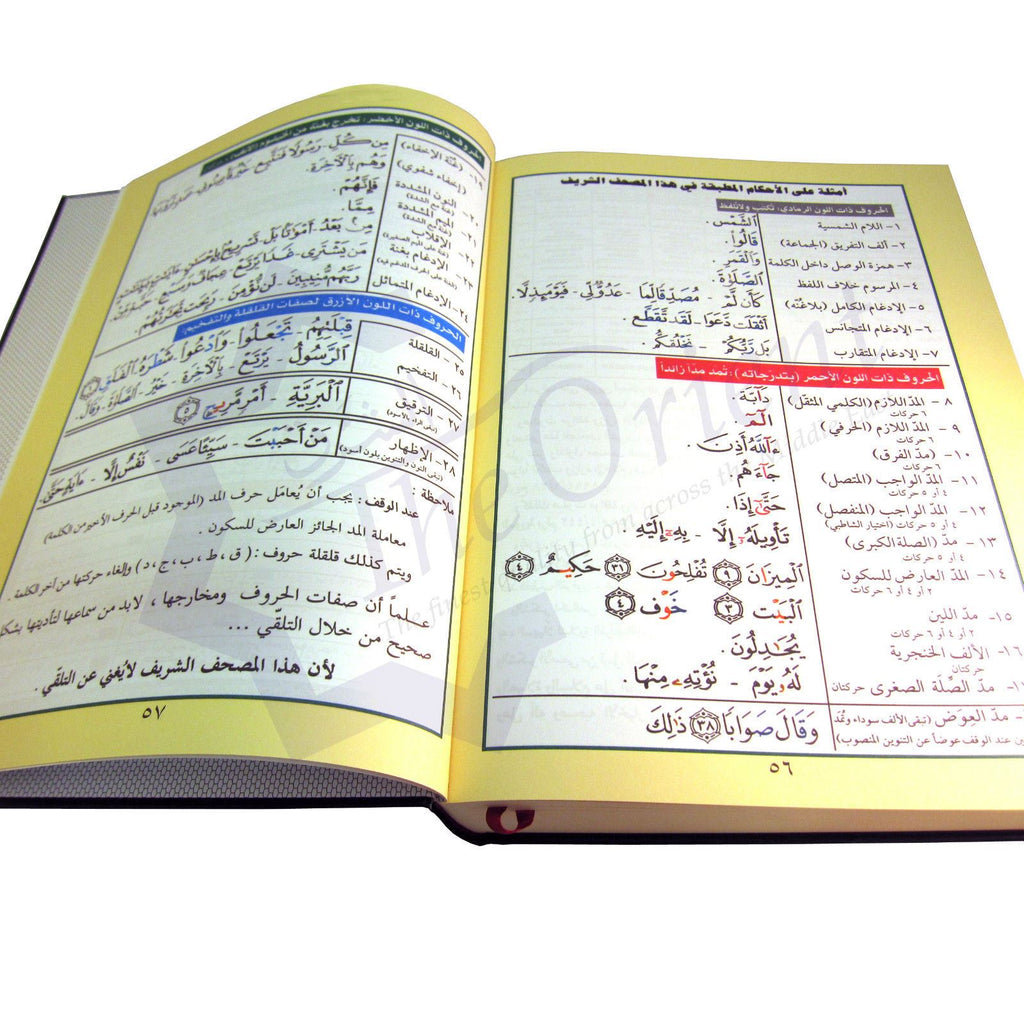 أمثلة على الأحكام المطبقة في هذا المصحف الشريف
الحروف ذات اللون الرمادي: تكتب ولا تلفظ
١- اللام الشمسية
ٱلشَّمْس .
٢- ألف التفريق (الجماعة)
قَالُواْ .
٣- همزة الوصل داخل الكلمة
وَٱلْقَمَرِ .
٤- المرسوم خلاف اللفظ
ٱلصَّلَوٰةَ .
٥- الإدغام الكامل (بلاغُنّه)
كَأَن لَّمْ - مُصَدِّقًا لِّمَا - عَدُوٌّ لِّي - فَيَوْمَئِذٍ لَّا .
٦- الإدغام المتجانس
أَثْقَلَت دَّعَوَا - لَقَد تَّقَطَّعَ .
٧- الإدغام المتقارب
بَل رَّبُّكُمْ - نَخْلُقكُّم .
الحروف ذات اللون الأحمر (بتدرجاته) : تُمد مداً زائداً
٨ - المدّ اللازم (الكلمي المثقّل)
٦ حركات
دَآبَّة .
٩ - المدّ اللازم (الحرفي)
٦ حركات
الٓمٓ
١٠- (مدّ الفرق)
٦ حركات
ءَآللَّهُ أَذِنَ .
١١- المدّ الواجب (المتصل)
٤ أو ٥ حركات
جَآءَهُم .
١٢- المدّ الواجب (المنفصل)
٤ أو ٥ حركات (اختيار الشاطبي)
حَتَّىٰٓ إِذَا .
١٣- مدّ (الصلة الكبرى)
٤ أو ٥ حركات
تَأْوِيلَهُۥٓ إِلَّا - بِهِۦٓ إِلَيْهِ .
١٤- المدّ العارض للسكون
٢ أو ٤ أو ٦ حركات
ٱلْمِيزَانَ ٩ تُفْلِحُونَ ٣١ حَكِيمٌ ٤
١٥- مدّ اللين
٢ أو ٤ أو ٦ حركات
ٱلْبَيْتِ ٣ خَوْفٍ ٤
الألف الخنجرية
حركتان
يُجَٰدِلُونَ .
مدّ الصِّلَة الصغرى حركتان
لَهُۥ يَوْمَ - نُؤْتِهِۦ مِنْهَا .
- مدّ العِوَض (تبقى الألف سوداء وتُمَدّ
عند الوقف عوضاً عن التنوين المنصوب)
وَقَالَ صَوَابًا ٣٨ ذَٰلِكَ
٥٦
الحروف ذات اللون الأخضر: تخرج بغنة من الخيشوم
(غُنّة الإخفاء)
مِن كُلِّ - رَسُولًا فَنَتَّبِعَ
(إخفاء شفوي)
وَهُم بِٱلْآخِرَةِ .
٢٠- النون المشددة
فَإِنَّهُمْ .
الميم المشددة
مِمَّا .
الإقلاب
مِنۢ بَعْدُ
الإدغام بغنة
مَن يَشْتَرِى
٢٤- الإدغام المتماثل
رَبَّهُم مُّنِيبِينَ - لَن نُّؤْمِنَ - رَبِحَت تِّجَٰرَتُهُمْ .
الحروف ذات اللون الأزرق لصفات القلقلة والتفخيم
٢٥ - القلقلة
قَبْلِهِم - تَجْعَلُواْ - وَٱدْعُواْ - شَطْرَهُ ٱلْفَلَقِ
٢٦ - التفخيم
ٱلرَّسُولُ - يَرْتَعْ - بِٱلْآخِرَةِ - خَيْرٌ - ٱلصَّلَوٰةَ - وَقَالَ .
٢٧ - الترقيق
(تبقى الراء بالأسود)
ٱلْبَرِيَّةِ - أَمْرٍ مَّرِيجٍ ٥
٢٨- الإظهار
(تبقى النون والتنوين بلون أسود)
مَنْ أَحْبَبْتَ - سَيِّئًا عَسَى - نَفْسٌ إِلَّا
ملاحظة :
عند الوقف: يجب أن يُعامَل حرف المد (الموجود قبل الحرف الأخير من الكلمة)
معاملة المد الجائز العارض للسكون .
ويتم كذلك قلقلة حروف : ( ق ، ط ، ب ، ج ، د ) وإلغاء حركتها من آخر الكلمة .
علماً أن صفات الحروف ومخارجها ، لابد من سماعها لتأديتها بشكل
صحيح من خلال التلقّي ...
لأن هذا المصحف الشريف لايُغني عن التلقّي .
٥٧
The Orient
The finest quality from across the Middle East